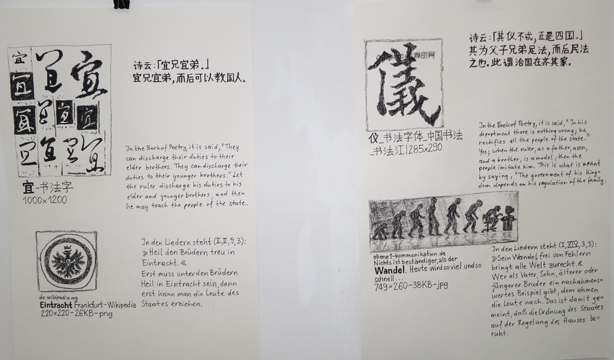 诗云:「宜兄宜弟。」
宜兄宜弟,而后可以教国人。
In the Book of Poetry, it is said, "They
can discharge their duties to their
elder brothers. They can discharge their
duties to their younger brothers." Let
the ruler discharge his duties to his
elder and younger brothers, and then
he may teach the people of the state.
宜_书法字
1000×1200
In den Liedern steht
» Heil den Brüdern treu in
Eintracht. «
Erst muss unter den Brüdern
Heil in Eintracht sein, dann
erst kann man die Leute des
Staates erziehen.
de.wikipedia.org
Eintracht Frankfurt-Wikipedia
220×220-26KB-png
诗云:「其仪不忒,正是四国。」
其为父子兄弟足法,而后民法
之也。此谓治国在齐其家。
仪_书法字体_中国书法
_书法江|285×290
In the Book of Poetry, it is said, "In his
deportment there is nothing wrong; he
rectifies all the people of the state."
Yes; when the ruler, as a father, a son,
and a brother, is a model, then the
people imitate him. This is what is meant
by saying, "The government of his king-
dom depends on his regulation of the family."
ebene1-kommunikation.de
Nichts ist beständiger, als der
Wandel. Heute wird so viel und so
schnell...
749×260-38KB-jpg
In den Liedern steht
»Sein Wandel frei von Fehlern
bringt alle Welt zurecht. «
Wer als Vater, Sohn, älterer oder
jüngerer Bruder ein nachahmens-
wertes Beispiel gibt, dem ahmen
die Leute nach. Das ist damit ge-
meint, daß die Ordnung des Staates
auf der Regelung des Hauses be-
ruht.